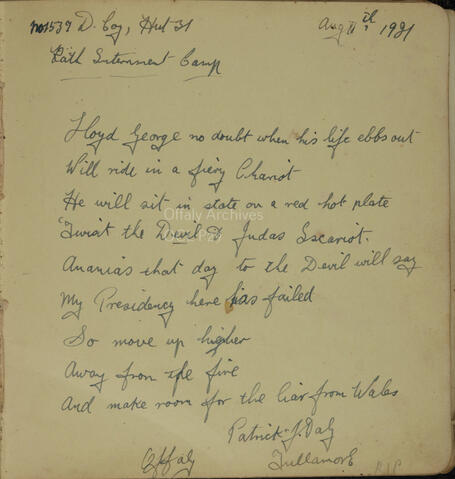 No 1539 D. Coy, Hut 31
Aug 11th 1921
Rath Internment Camp
Lloyd George no doubt when his life ebbs out
Will ride in a fiery Chariot
He will sit in state on a red hot plate
Twixt the Devil & Judas Iscariot.
Ananias that day to the Devil will say
My Presidency here has failed
So move up higher
Away from the fire
And make room for the liar from Wales
Patrick J. Daly
Offaly
Tullamore
Offaly Archives